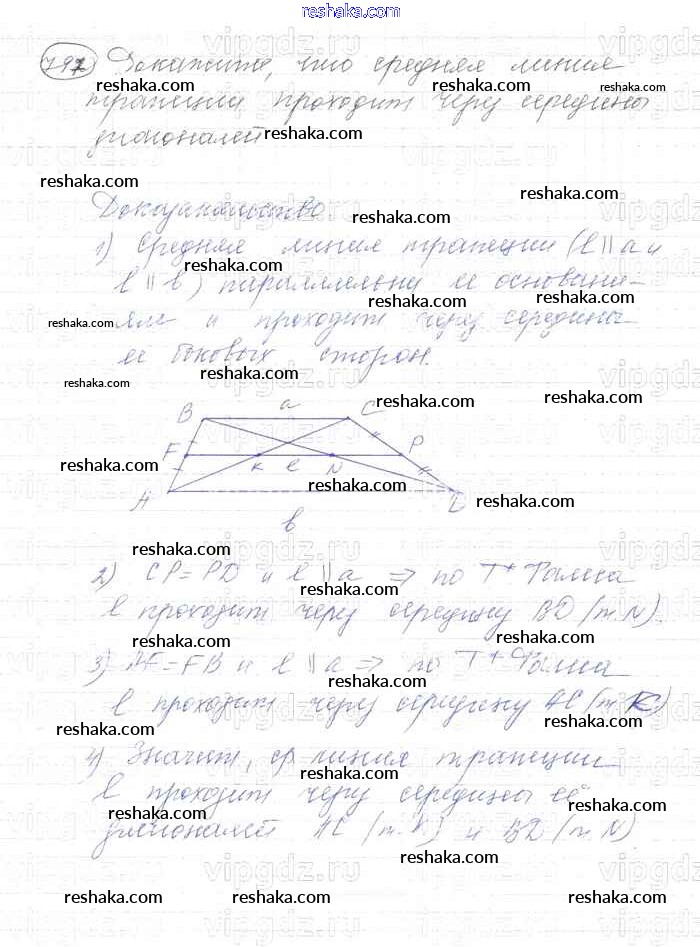 reshaka.com
797 Докажите, что средняя линия
трапеции проходит через середины
диагоналей.
Доказательство.
1) Средняя линия трапеции (l || a и
l || b) параллельна её основани-
ям и проходит через середины
её боковых сторон.
B a C
F K l N P
A D
b
2) CP = PD и l || a ⇒ по Т. Фалеса
l проходит через середину BD (т. N).
3) AF = FB и l || a ⇒ по Т. Фалеса
l проходит через середину AC (т. K)
4) Значит, ср. линия трапеции
l проходит через середины её
диагоналей AC (т. K) и BD (т. N).